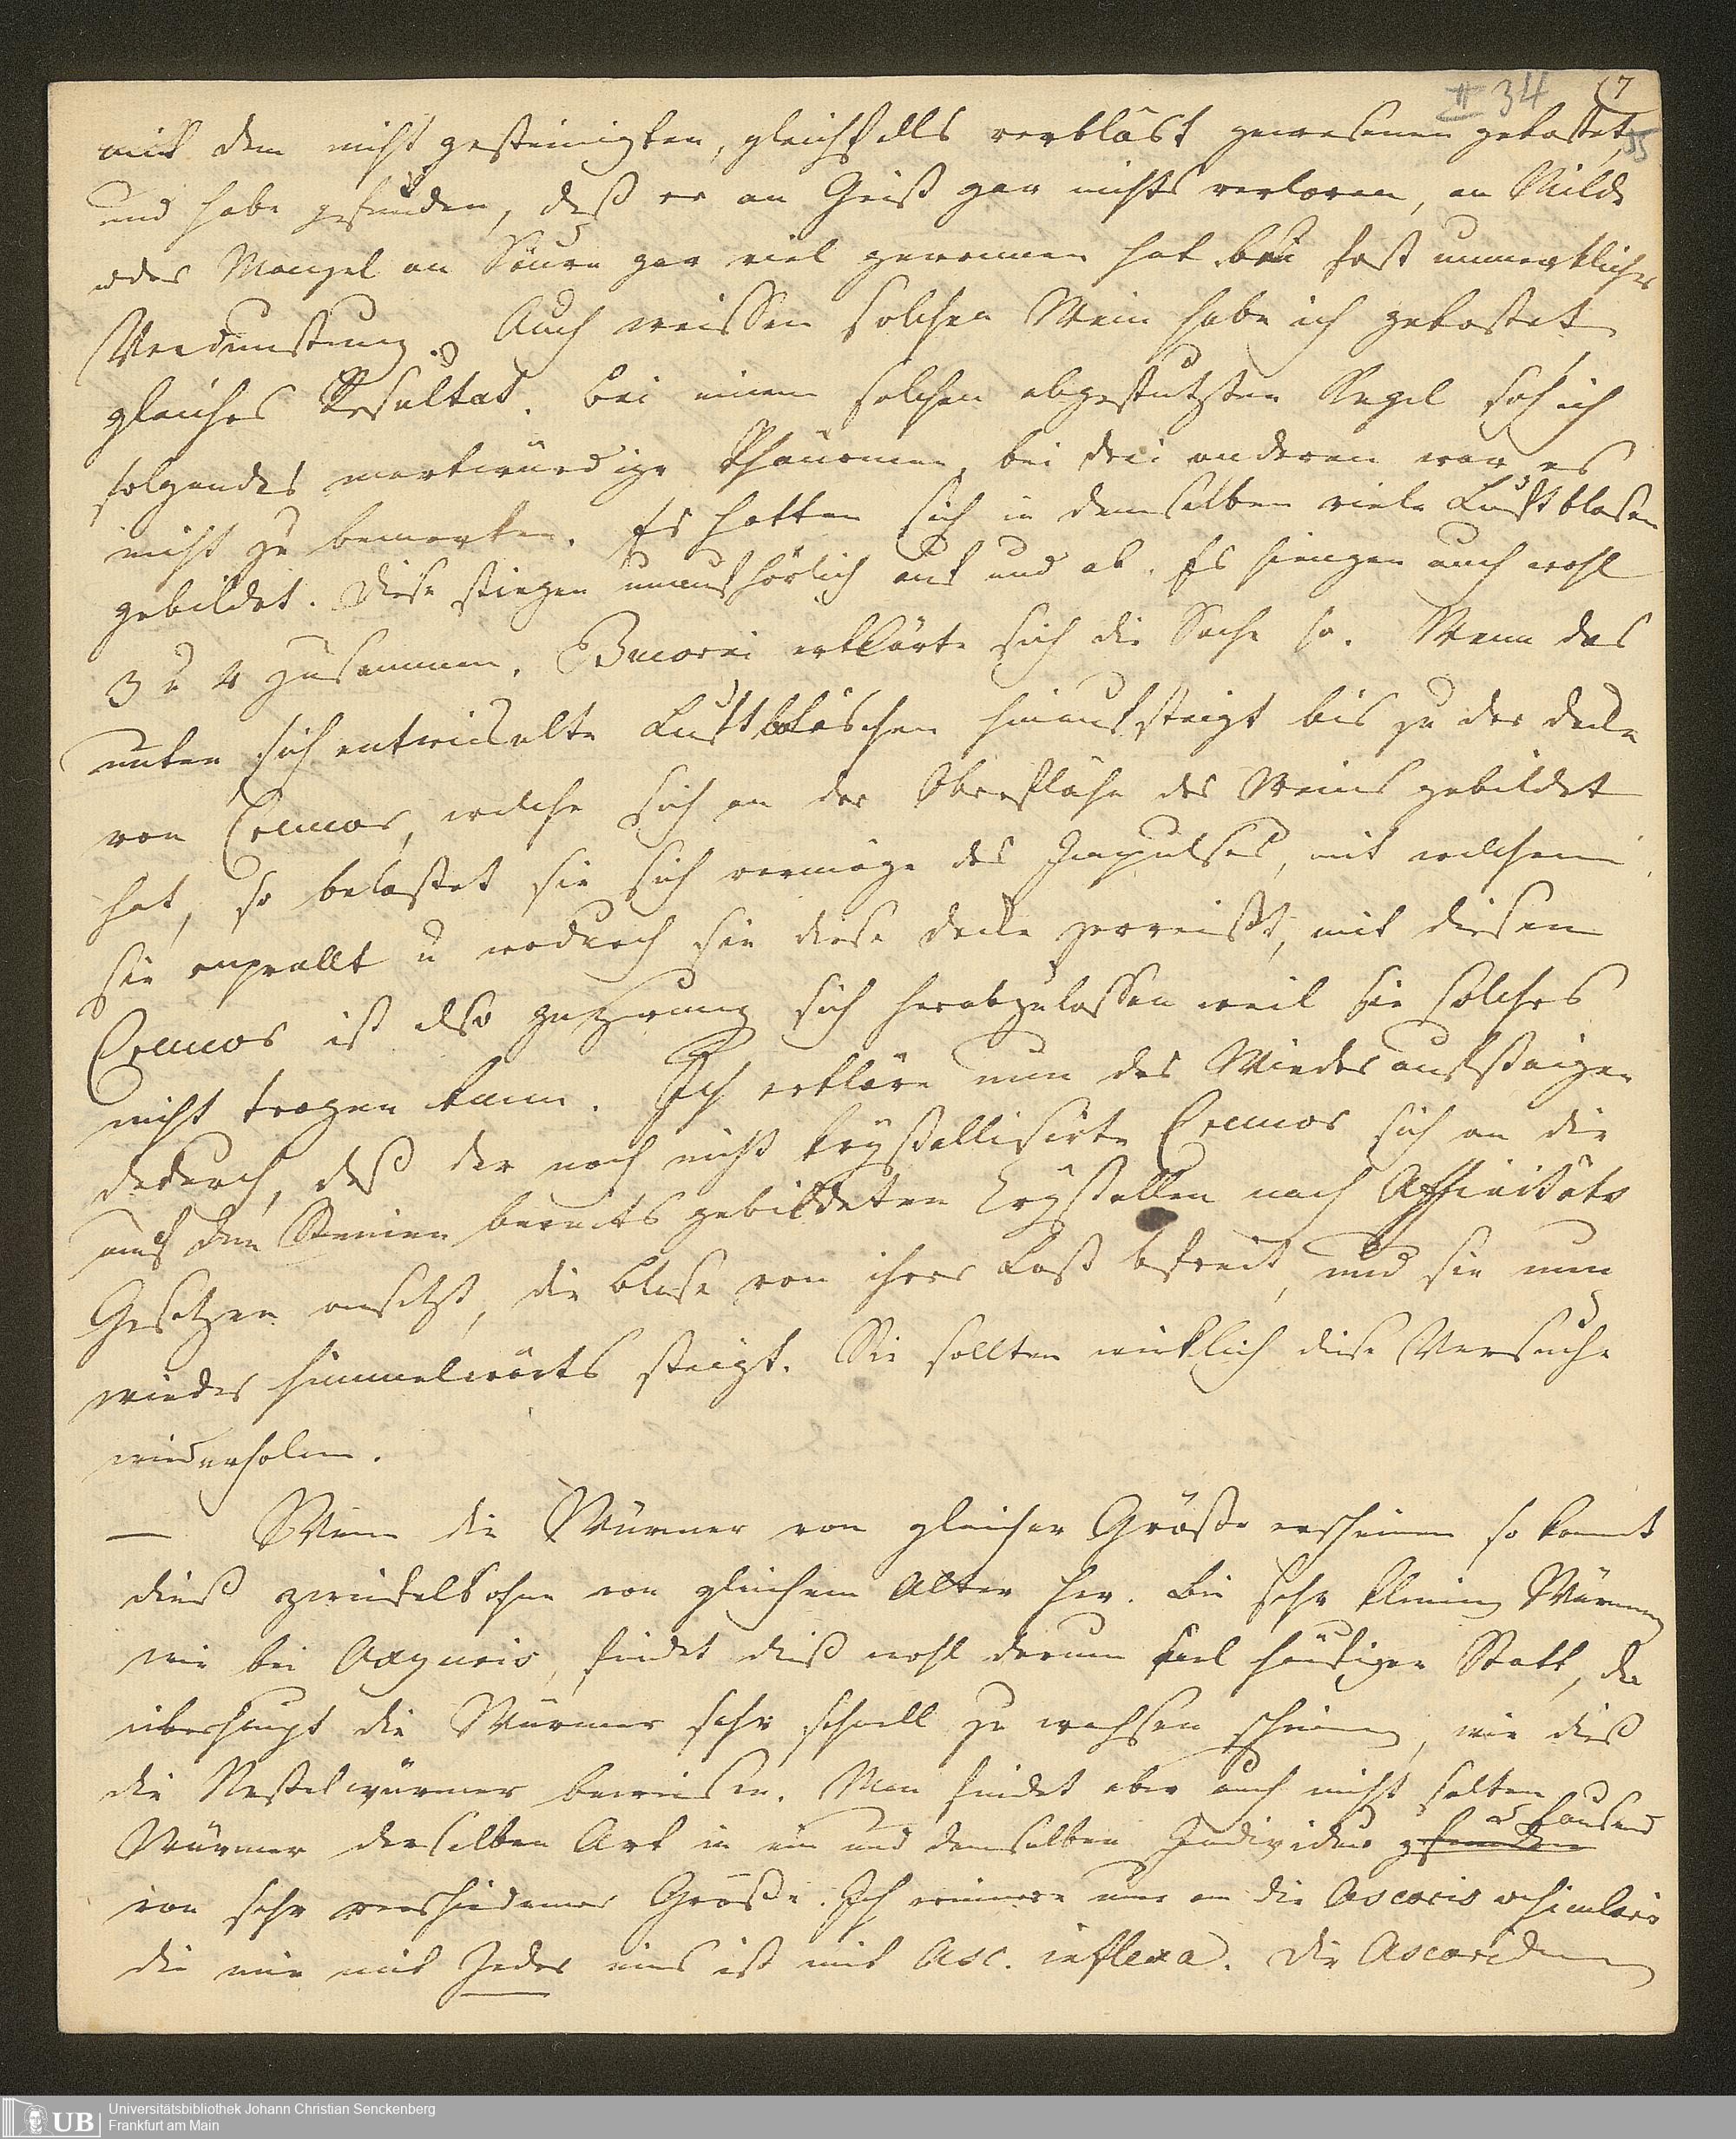 II 34 17
35
mit dem nicht gesteinigten, gleichfalls verbläst gewesenen gekostet,
und habe gefunden, daß er an Geist gar nichts verloren, an Milde
oder Mangel an Säure gar viel gewonnen hat bei fast unmerklicher
Verdunstung. Auch weissen solchen Wein habe ich gekostet
gleiches Resultat. Bei einem solchen abgestutzten Kegel sah ich
folgendes merkwürdige Phänomen, bei drei anderen war es
nicht zu bemerken. Es hatten sich in demselben viele Luftblasen
gebildet. Diese stiegen unaufhörlich auf und ab. Es hiengen auch wohl
3 u 4 zusammen. erklärte sich die Sache so. Wenn das
unten sich entwickelte Luftbläschen hinaufsteigt bis zu der Decke
von Cremor, welche sich an der Oberfläche des Weins gebildet
hat, so belastet sie sich vermöge des Impulses, mit welchem
sie anprallt u wodurch sie diese Decke zerreißt, mit diesem
Cremor ist also gezwung sich herabzulassen weil sie solches
nicht tragen kann. Ich erkläre nun das Wiederaufsteigen
dadurch, daß der noch nicht krystallisirte Cremor sich an die
auf den Steinen bereits gebildeten Crystallen nach Affinitäts
Gesetzen ansetzt, die Blase von ihrer Last befreit, und sie nun
wieder himmelwärts steigt. Sie sollten wirklich diese Versuche
wiederholen.
— Wenn die Würmer von gleicher Größe erscheinen so kommt
dieß zweifelsohne von gleichem Alter her. Bei sehr kleinen Würmern
wie bei Oxyuris, findet dieß wohl darum viel häufiger Statt, da
überhaupt die Würmer sehr schnell zu wachsen scheinen, wie dieß
die Nestelwürmer beweisen. Man findet aber auch nicht selten
Würmer derselben Art in ein und demselben Individuo gefunden tausend
von sehr verschiedener Größe. Ich erinnere nur an die Ascaris
die mir mit Jeder eins ist mit Asc. inflexa. Die Ascariden
Universitätsbibliothek Johann Christian Senckenberg
Frankfurt am Main
UB